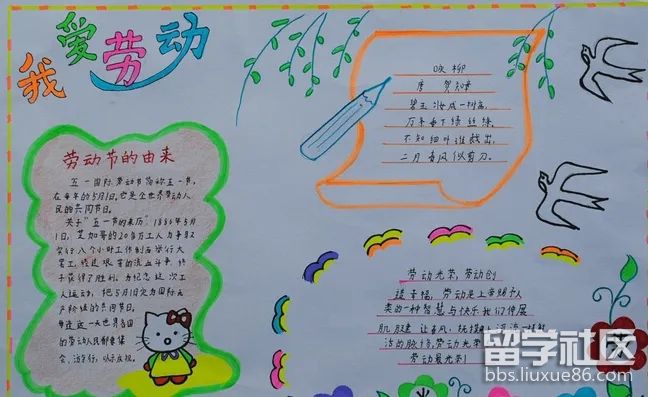 我爱劳动
劳动节的由来
五一国际劳动节简称五一节,
在每年的5月1日,它是全世界劳动人
民的共同节日。
关于"五一节的来历":1886年5月
1日,芝加哥的20多万工人为争取
实行八个小时工作制而举行大
罢工,经过艰苦的流血斗争,终
于获得了胜利。为纪念这次工
人运动,把5月1日定为国际无
产阶级的共同节日。
每逢这一天世界各国
的劳动人民都要集
会、游行,以示庆祝。
咏柳
唐 贺知章
碧玉妆成一树高,
万条垂下绿丝绦。
不知细叶谁裁出,
二月春风似剪刀。
劳动光荣,劳动创
造幸福,劳动是上帝赐予人
类的一种智慧与快乐我们伸展
肌腱让春风,抚摸
活的脉络,劳动光荣
劳动最光荣!
留学社区
bbs.liuxue86.com